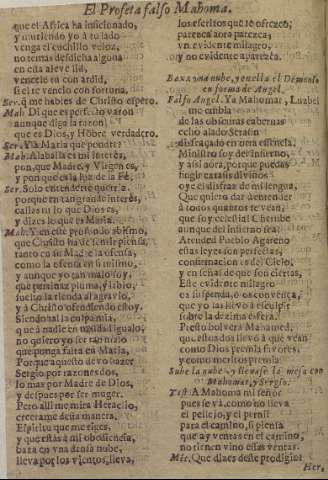 El Profeta falso Mahoma.
que el Africa ha inficionado,
y muriendo yo à tu lado
venga el cuchillo veloz,
no temas desdicha alguna
en esta aleve lid,
vencele con ardid,
si el te venciò con fortuna.
Ser. q̃ me hables de Christo espero.
Mah. Di que es perfecto varon
aunque diga la razon
que es Dios, y Hõbre verdadero.
Ser. Y à Maria que pondre?
Mah. Alaballa es mi interès,
pon, que Madre, y Virgen es,
y pon que es la luz de la Fè.
Ser. Solo entenderte querria
porque en tan grande interès,
callas tu lo que Dios es,
y dizes lo que es Maria.
Mah. Y en este profundo abismo,
que Christo ha de sentir piensa,
tanto en su Madre la ofensa,
como la ofensa en si mismo,
y aunque yo tan malo soy,
que pervierto pluma, y labio,
suelto la rienda al agravio,
y à Christo ofendiendo estoy.
Siendo tal la culpa mia,
que à nadie en maldad igualo,
no quiero yo ser tan malo
que ponga falta en Maria,
Porque aquesto devo hazer
Sergio por razones dos,
lo mas por Madre de Dios,
y despues por ser muger.
Pero alli me mira Heraclio,
crecerame desta manera.
Espiritu que me riges,
y que estàs à mi obediencia,
baxa en vna densa nube,
lleva por los vientos, lleva,
los escritos que te ofrezco;
parezca aora parezca,
vn evidente milagro,
y no evidente aparezca.
Baxa vna nube, y en ella el Demonio
en forma de Angel.
Falso Angel. Ya Mahoma, Luzbel
me embia
de las obscuras cabernas
echo alado Serafin
disfraçado en otra essencia.
Ministro soy del infierno,
y assi aora, porque puedas
fingir caratulas divinos
oye el disfraz de mi lengua,
Que quiero dàr à entender
à todos quantos te vean,
que soy celestial Cherube
aunque del infierno sea:
Atended Pueblo Agareno
estas leyes son perfectas,
confirmacion es del Cielo,
y en señal de que son ciertas,
Este evidente milagro
es suspenda, ò os convença,
que yo las llevo à esculpir
sobre la dezima esfera.
Presto bolverà Mahamed,
que estos dos llevo à que vean
como Dios premia favores,
y como meritos premia.
Sube la nube, y llevase la mesa con
Mahomat, y Sergio.
Test. A Mahoma mi señor
pues se và, como no lleva
el pellejo, y el pernil
para el camino, si piensa
que ay ventas en el camino,
no tienen vino estas ventas.
Mir. Que dizes deste prodigio?
Her.